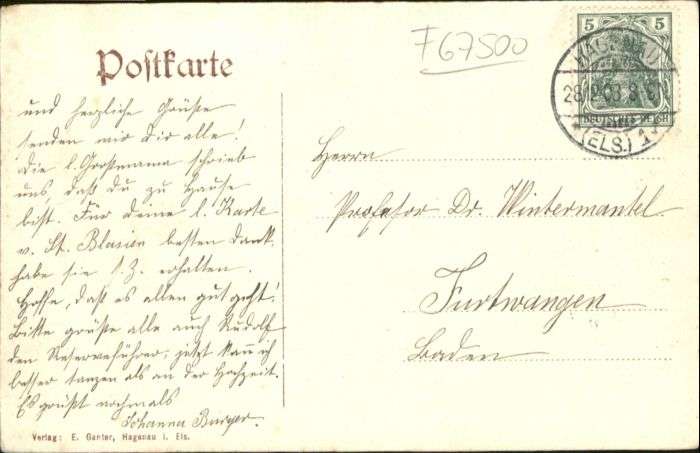 F67500
5 5
HAGENAU
28.2.08.8-9V
DEUTSCHES REICH
(ELS.) 1
Postkarte
und herzliche Grüße
senden wir Dir alle!
Die l. Grossmama schrieb
uns, daß du zu Hause
bist. Für deine l. Karte
v. St. Blasien besten Dank,
habe sie s. Z. erhalten.
Hoffe, daß es allen gut geht!
Bitte grüße alle auch Rudolf
den Reserveführer; jetzt kann ich
besser tanzen als an der Hochzeit.
Es grüßt nochmals
Johanna Burger.
Herrn
Professor Dr. Wintermantel
Furtwangen
Baden
Verlag: E. Ganter, Hagenau i. Els.